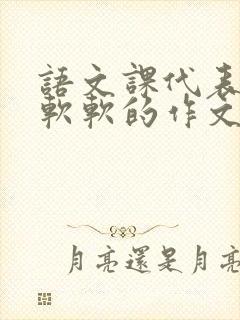 語文課代表
軟軟的作文
月亮還是月亮